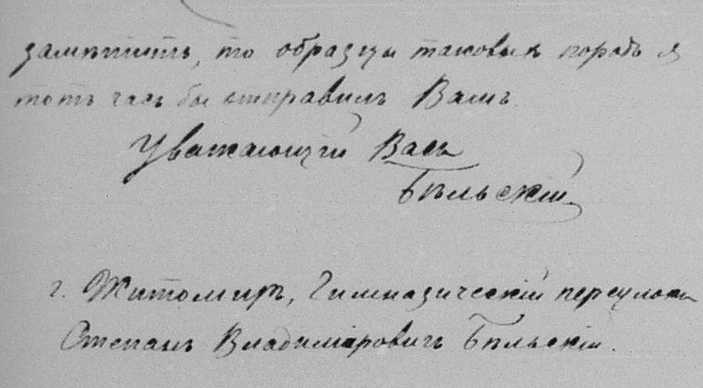 замѣтить, то образцы таковыхъ породъ я
тотъ часъ бы отправилъ Вамъ.
Уважающій Васъ
Бѣльскій
г. Житомиръ, Гимназическій переулокъ
Степанъ Владимiровичъ Бѣльскій.